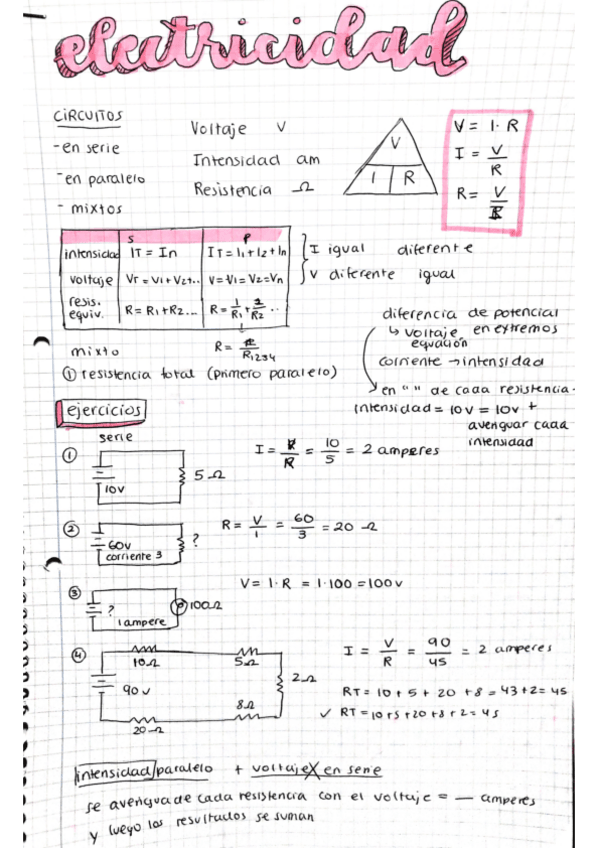 electricidad
CIRCUITOS
- en serie
- en paralelo
- mixtos
Voltaje V
Intensidad am
Resistencia Ω
V
I R
V = I · R
I = V/R
R = V/I
S P
intensidad IT = In IT = I1 + I2 + In
voltaje VT = V1 + V2 +.. V = V1 = V2 = Vn
resis. equiv. R = R1 + R2 ... R = 1/R1 + 1/R2 ..
I igual diferente
V diferente igual
mixto
① resistencia total (primero paralelo)
diferencia de potencial
↳ voltaje en extremos
ecuación
corriente → intensidad
en " " de cada resistencia.
intensidad = 10v = 10v +
averiguar cada
intensidad
ejercicios
serie
① 10v 5 Ω
I = V/R = 10/5 = 2 amperes
② 60v ?
corriente 3
R = V/I = 60/3 = 20 Ω
③ ? 100Ω
1 ampere
V = I · R = 1 · 100 = 100 v
④ 10Ω 5Ω
90 v 2Ω
20Ω 8Ω
I = V/R = 90/45 = 2 amperes
RT = 10 + 5 + 20 + 8 = 43 + 2 = 45
✓ RT = 10 + 5 + 20 + 8 + 2 = 45
intensidad/paralelo + voltaje X en serie
se averigua de cada resistencia con el voltaje = — amperes
y luego los resultados se suman